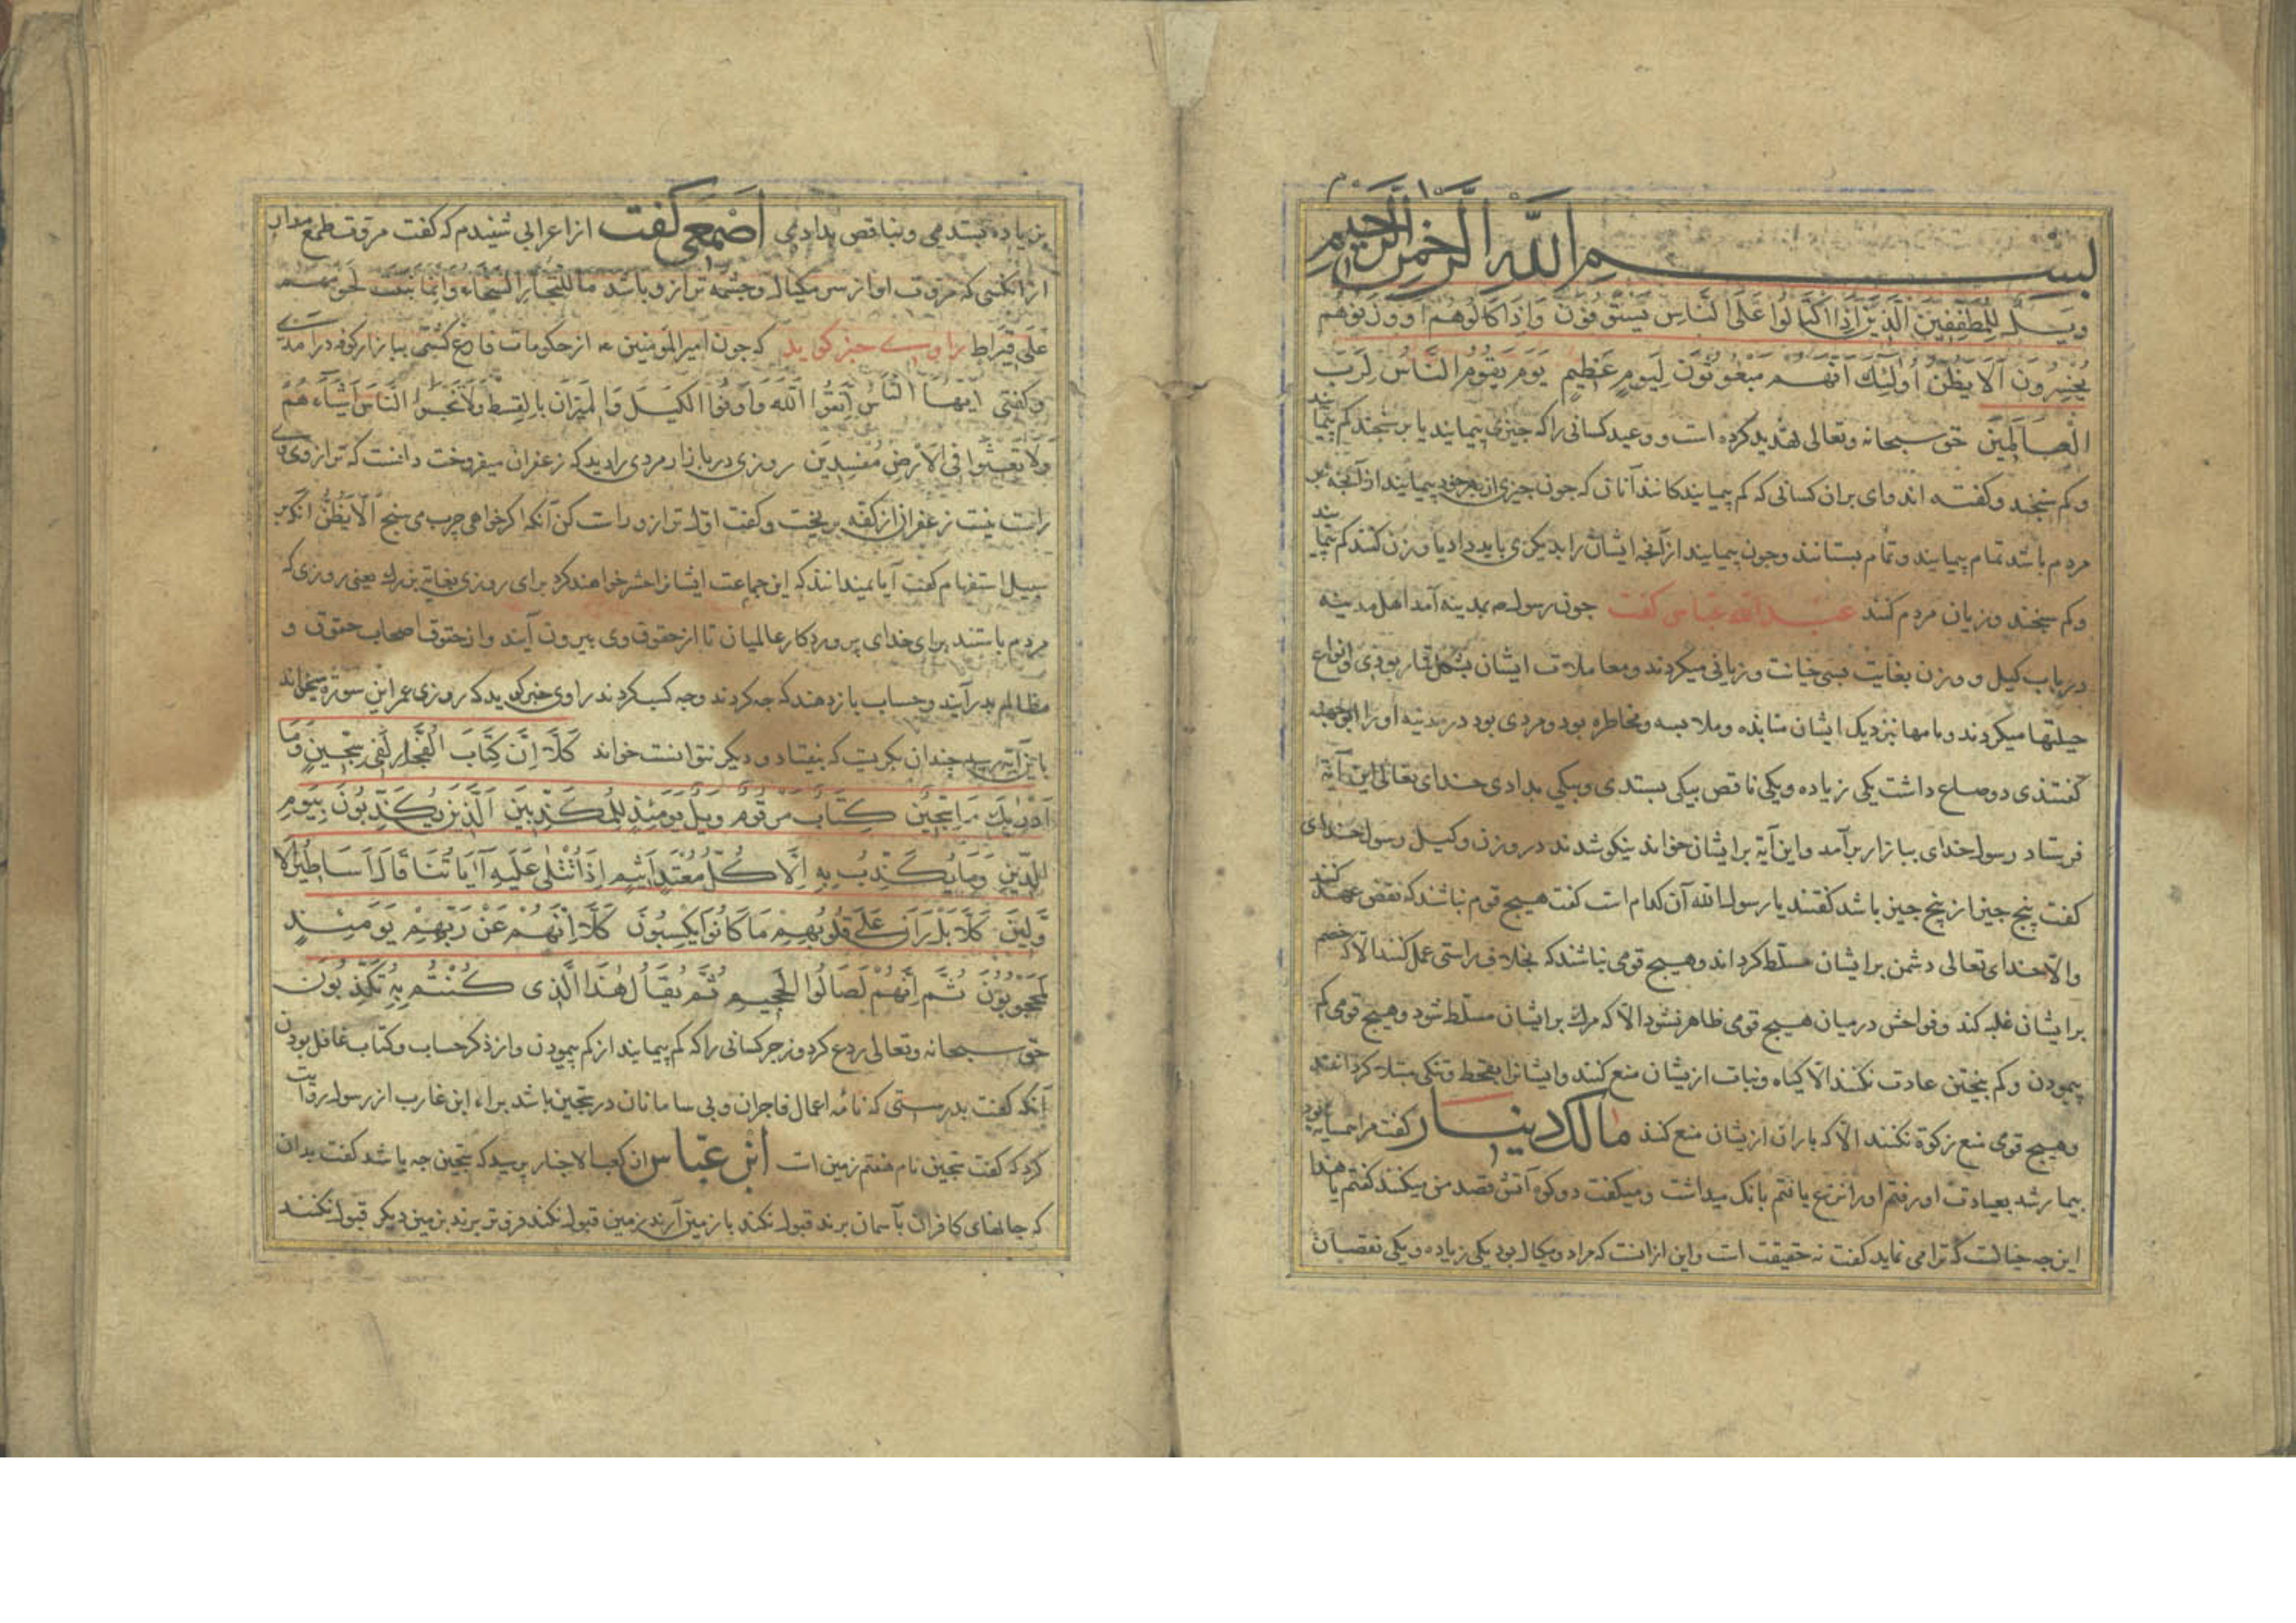 بسم الله الرحمن الرحيم
وَيْلٌ لِلْمُطَفِّفِينَ الَّذِينَ إِذَا اكْتَالُوا عَلَى النَّاسِ يَسْتَوْفُونَ وَإِذَا كَالُوهُمْ أَوْ وَزَنُوهُمْ
يُخْسِرُونَ أَلَا يَظُنُّ أُولَئِكَ أَنَّهُمْ مَبْعُوثُونَ لِيَوْمٍ عَظِيمٍ يَوْمَ يَقُومُ النَّاسُ لِرَبِّ
الْعَالَمِينَ حق سبحانه وتعالی تهدید کرده است و وعید کسانی را که چیزی پیمایند یا بر سنجند کم پیمایند
و کم سنجند و گفته اند وای بران کسانی که کم پیمایند کانند آنان که چون چیزی از بهر خود پیمایند از آنچه بر
مردم باشد تمام پیمایند و تمام بستانند و چون پیمایند از آنچه ایشان را بدیگری باید داد یا وزن کنند کم پیمایند
و کم سنجند و زیان مردم کنند عبد الله عباس گفت چون رسول بمدینه آمد اهل مدینه
در باب کیل و وزن بغایت بسی خیانت و زیانی میکردند و معاملات ایشان بشکل قمار بودی و انواع
حیلتها میکردند و نامها نزدیک ایشان منابذه و ملامسه و مخاطره بود و مردی بود در مدینه او را ابوجهینه
گفتندی دو صاع داشت یکی زیاده و یکی ناقص بیکی بستدی و بیکی بدادی خدای تعالی این آیة
فرستاد رسول خدای ببازار برآمد و این آیة بر ایشان خواند نیکو شدند در وزن و کیل رسول خدای
گفت پنج چیز از پنج چیز باشد گفتند یا رسول الله آن کدام است گفت هیچ قوم نباشد که نقض عهد کنند
والا خدای تعالی دشمن بر ایشان مسلط کرداند و هیچ قومی نباشد که بخلاف راستی عمل کنند الا که خصم
بر ایشان غلبه کند و فواحش در میان هیچ قومی ظاهر نشود الا که مرگ بر ایشان مسلط شود و هیچ قومی کم
پیمودن و کم سنجتن عادت نکنند الا گیاه و نبات ازیشان منع کنند و ایشانرا بقحط و تنگی مبتلا کردانند
و هیچ قومی منع زکوة نکنند الا که باران ازیشان منع کنند مالک دینار گفت مرا همسایه بود
بیمار شد بعیادت او رفتم او را در نزع یافتم بانک میداشت و میگفت دو کوه آتش قصد من میکنند گفتم یا هذا
این چه خیالست که ترا می نماید گفت نه حقیقت است و این از انست که مرا دو مکیال بود یکی زیاده و یکی نقصان
بزیاده بستدمی و بناقص بدادمی اصمعی گفت از اعرابی شنیدم که گفت مروت طمع مدار
از انکسی که مروت او از سر مکیال و چشمه ترازو باشد ما للتجار السخاء وانما نبتت لحومهم
علی قیراط راوی خبر گوید که چون امیر المؤمنین از حکومات فارغ گشتی ببازار کوفه درآمدی
و گفتی ایها الناس اتقوا الله واوفوا الکیل والمیزان بالقسط ولا تبخسوا الناس اشیاءهم
ولا تعثوا فی الارض مفسدین روزی در بازار مردی را دید که زعفران میفروخت دانست که ترازوی
راست نیست زعفران از کفه بریخت و گفت اول ترازو راست کن آنکه اگر خواهی چرب می سنج الا یظن آنکه بر
سبیل استفهام گفت آیا نمیدانند که این جماعت ایشانرا حشر خواهند کرد برای روزی بغایة بزرک یعنی روزی که
مردم باستند برای خدای پروردکار عالمیان تا از حقوق وی بیرون آیند و از حقوق اصحاب حقوق و
مظالم بدر آیند و حساب باز دهند که چه کردند و چه کسب کردند راوی خبر گوید که روزی عمر این سورة میخواند
باین آیة رسید چندان بگریست که بیفتاد و دیگر نتوانست خواند كَلَّا إِنَّ كِتَابَ الْفُجَّارِ لَفِي سِجِّينٍ وَمَا
أَدْرَاكَ مَا سِجِّينٌ كِتَابٌ مَرْقُومٌ وَيْلٌ يَوْمَئِذٍ لِلْمُكَذِّبِينَ الَّذِينَ يُكَذِّبُونَ بِيَوْمِ
الدِّينِ وَمَا يُكَذِّبُ بِهِ إِلَّا كُلُّ مُعْتَدٍ أَثِيمٍ إِذَا تُتْلَى عَلَيْهِ آيَاتُنَا قَالَ أَسَاطِيرُ الْأَ
وَّلِينَ كَلَّا بَلْ رَانَ عَلَى قُلُوبِهِمْ مَا كَانُوا يَكْسِبُونَ كَلَّا إِنَّهُمْ عَنْ رَبِّهِمْ يَوْمَئِذٍ
لَمَحْجُوبُونَ ثُمَّ إِنَّهُمْ لَصَالُوا الْجَحِيمِ ثُمَّ يُقَالُ هَذَا الَّذِي كُنْتُمْ بِهِ تُكَذِّبُونَ
حق سبحانه وتعالی ردع کرد و زجر کسانی را که کم پیمایند از کم پیمودن و از ذکر حساب و کتاب غافل بودن
آنکه گفت بدرستی که نامه اعمال فاجران و بی سامانان در سجین باشد براء ابن عازب از رسول روایت
کرد که گفت سجین نام هفتم زمین است ابن عباس از کعب الاحبار پرسید که سجین چه باشد گفت بدان
که جانهای کافران بآسمان برند قبول نکند باز زمین آرند زمین قبول نکند فروتر برند بزمین دیگر قبول نکنند